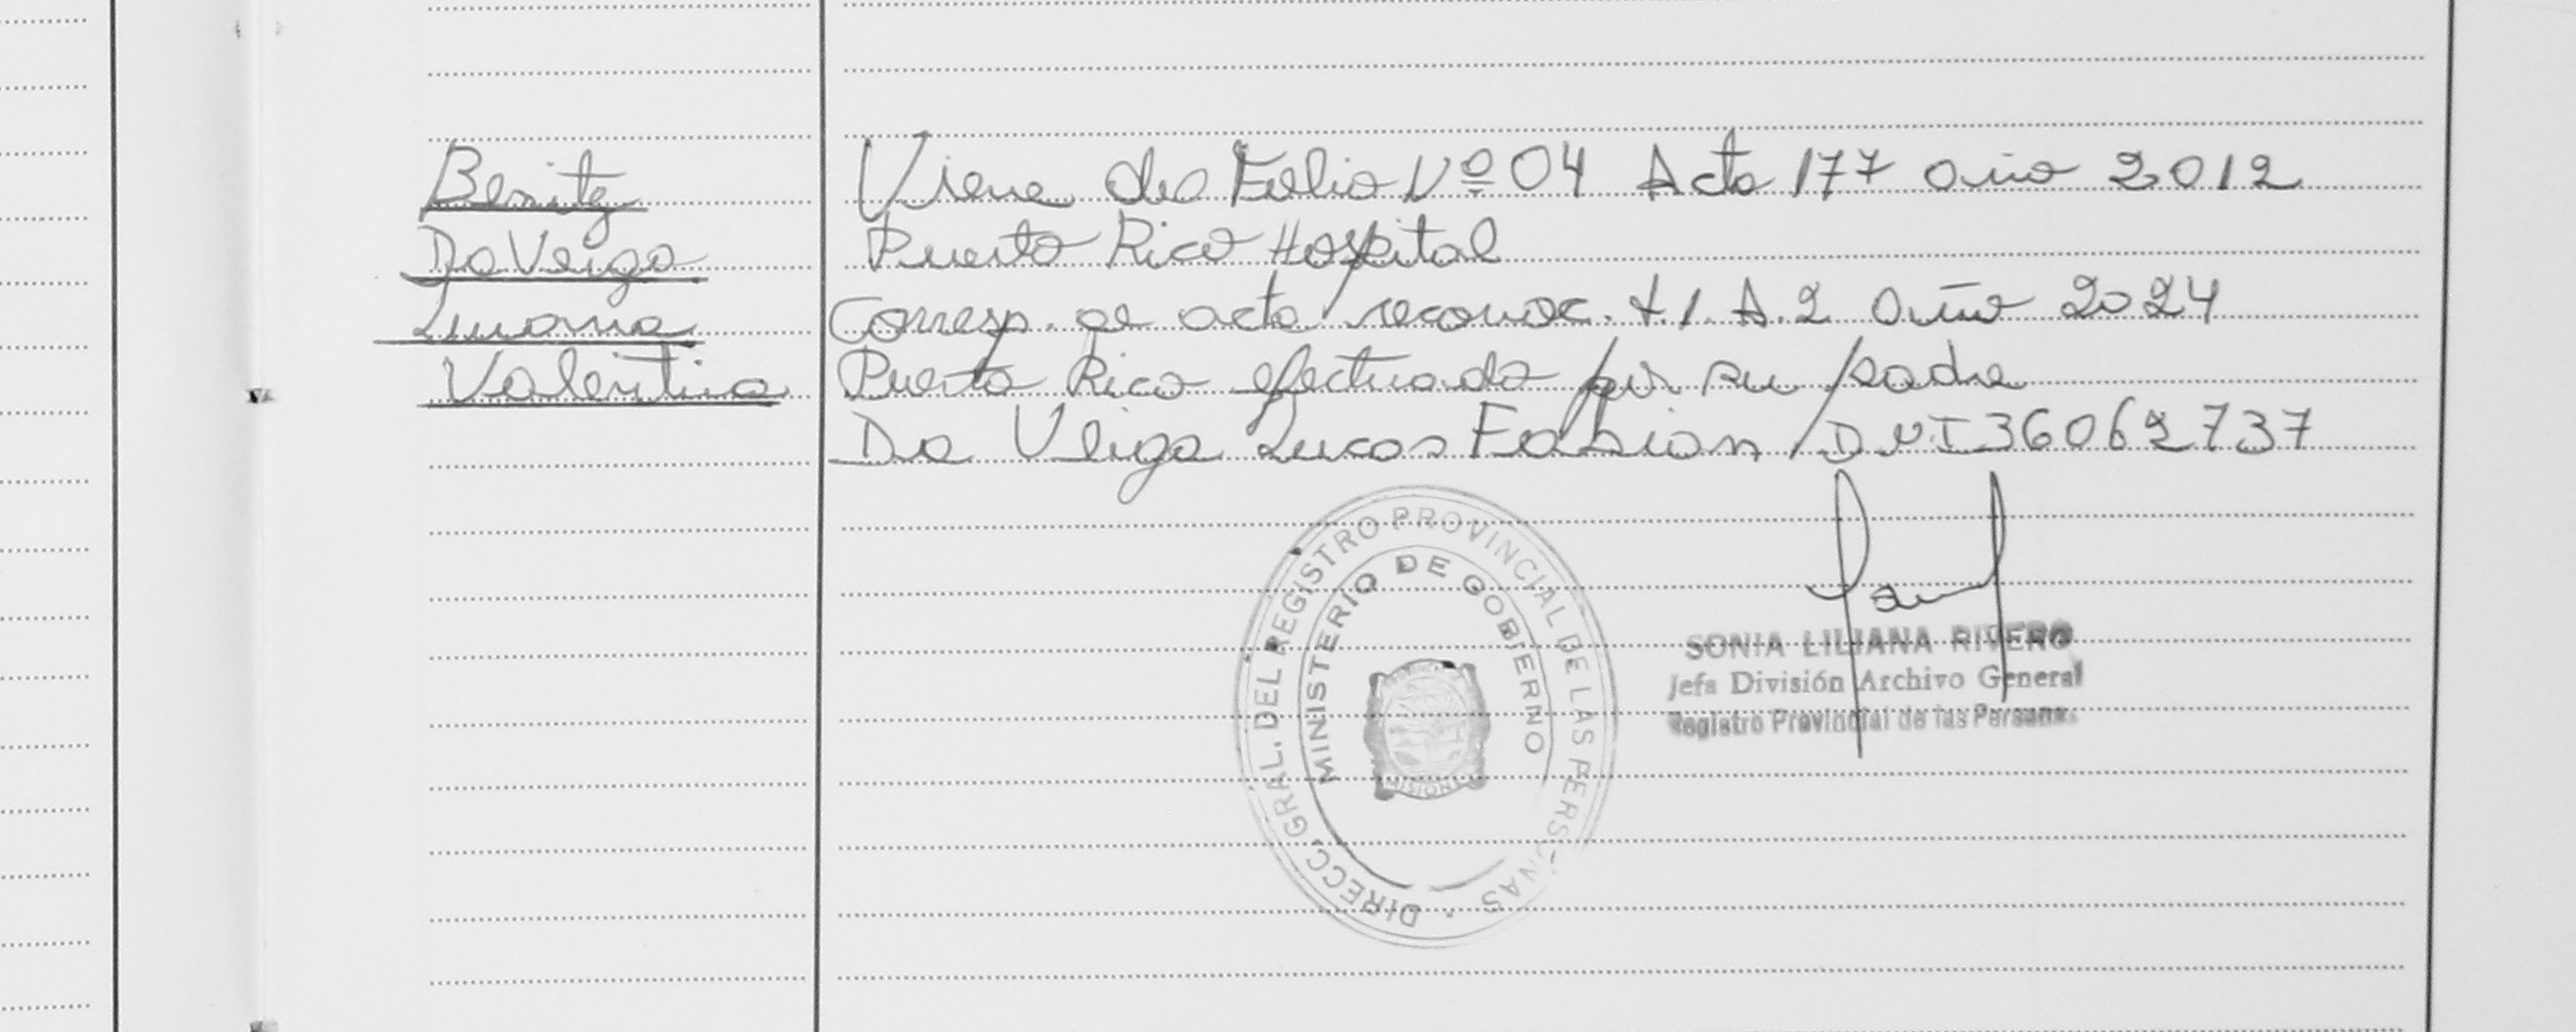 Benitez
Da Veiga
Luana
Valentina
Viene del Folio Nº 04 Acta 177 año 2012
Puerto Rico Hospital
Corresp. al acta reconoc. t.1. A.2 Año 2024
Puerto Rico efectuado por su padre
Da Veiga Lucas Fabian DNI 36062737
DIRECC. GRAL. DEL REGISTRO PROVINCIAL DE LAS PERSONAS
MINISTERIO DE GOBIERNO
MISIONES
SONIA LILIANA RIVERO
Jefa División Archivo General
Registro Provincial de las Personas